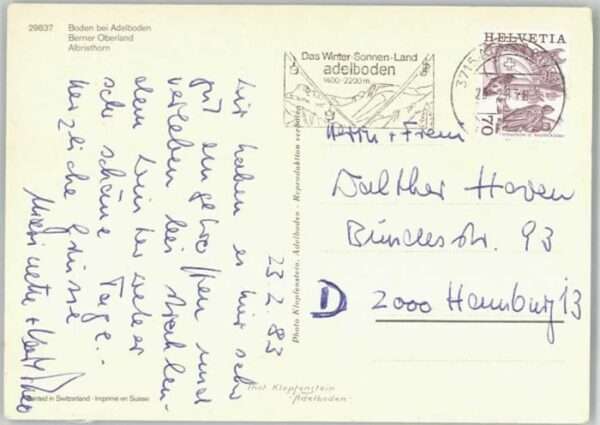 29837 Boden bei Adelboden
Berner Oberland
Albristhorn
Das Winter-Sonnen-Land
adelboden
1400-2200 m
3715
HELVETIA
70
Herrn + Frau
Walther Haven
Bundesstr. 93
D 2000 Hamburg 13
23.2.83
wir haben es hier sehr
gut angetroffen und
verleben bei strahlen-
dem Winterwetter
sehr schöne Tage.-
Herzliche Grüsse
Photo Klopfenstein, Adelboden - Reproduktion verboten
Printed in Switzerland - Imprimé en Suisse
Klopfenstein
"Adelboden"